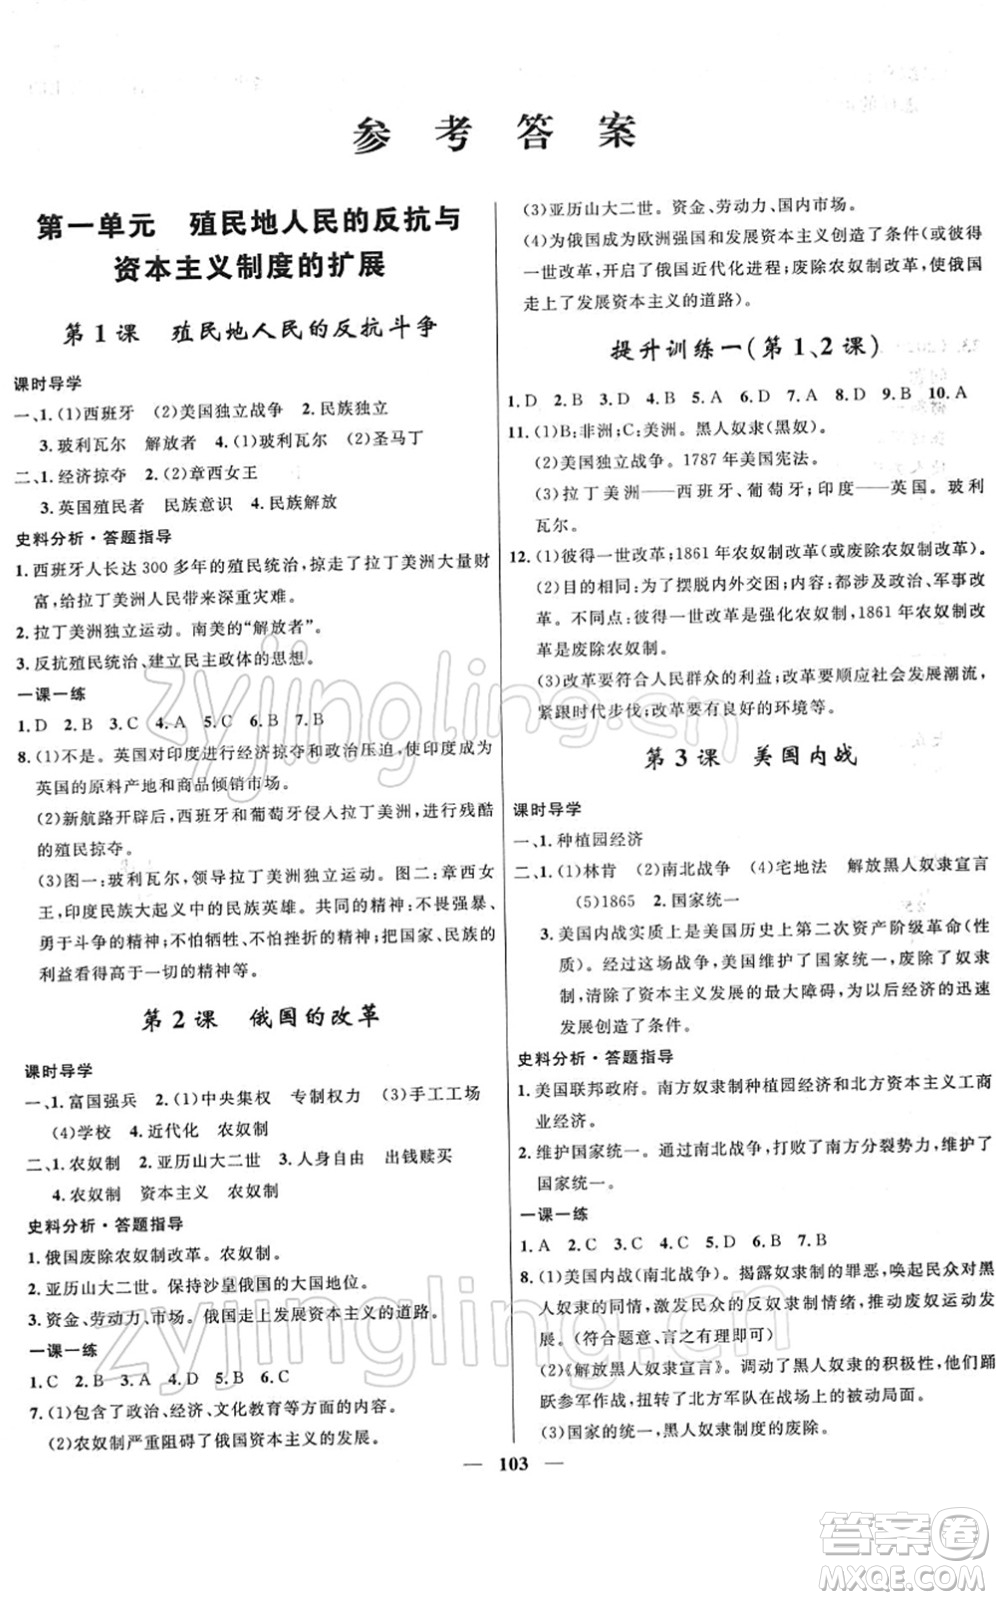 参 考 答 案
第一单元 殖民地人民的反抗与
资本主义制度的扩展
第 1 课 殖民地人民的反抗斗争
课时导学
一、1.(1)西班牙 (2)美国独立战争 2.民族独立
3.玻利瓦尔 解放者 4.(1)玻利瓦尔 (2)圣马丁
二、1.经济掠夺 2.(2)章西女王
3.英国殖民者 民族意识 4.民族解放
史料分析·答题指导
1.西班牙人长达 300 多年的殖民统治,掠走了拉丁美洲大量财
富,给拉丁美洲人民带来深重灾难。
2.拉丁美洲独立运动。南美的“解放者”。
3.反抗殖民统治、建立民主政体的思想。
一课一练
1.D 2.B 3.C 4.A 5.C 6.B 7.B
8.(1)不是。英国对印度进行经济掠夺和政治压迫,使印度成为
英国的原料产地和商品倾销市场。
(2)新航路开辟后,西班牙和葡萄牙侵入拉丁美洲,进行残酷
的殖民掠夺。
(3)图一:玻利瓦尔,领导拉丁美洲独立运动。图二:章西女
王,印度民族大起义中的民族英雄。共同的精神:不畏强暴、
勇于斗争的精神;不怕牺牲、不怕挫折的精神;把国家、民族的
利益看得高于一切的精神等。
第 2 课 俄国的改革
课时导学
一、1.富国强兵 2.(1)中央集权 专制权力 (3)手工工场
(4)学校 4.近代化 农奴制
二、1.农奴制 2.亚历山大二世 3.人身自由 出钱赎买
4.农奴制 资本主义 农奴制
史料分析·答题指导
1.俄国废除农奴制改革。农奴制。
2.亚历山大二世。保持沙皇俄国的大国地位。
3.资金、劳动力、市场。俄国走上发展资本主义的道路。
一课一练
1.C 2.A 3.D 4.B 5.B 6.C
7.(1)包含了政治、经济、文化教育等方面的内容。
(2)农奴制严重阻碍了俄国资本主义的发展。
(3)亚历山大二世。资金、劳动力、国内市场。
(4)为俄国成为欧洲强国和发展资本主义创造了条件(或彼得
一世改革,开启了俄国近代化进程;废除农奴制改革,使俄国
走上了发展资本主义的道路)。
提升训练一(第 1、2 课)
1.D 2.B 3.D 4.D 5.B 6.D 7.A 8.A 9.B 10.A
11.(1)B:非洲;C:美洲。黑人奴隶(黑奴)。
(2)美国独立战争。1787 年美国宪法。
(3)拉丁美洲——西班牙、葡萄牙;印度——英国。玻利
瓦尔。
12.(1)彼得一世改革;1861年农奴制改革(或废除农奴制改革)。
(2)目的相同:为了摆脱内外交困;内容:都涉及政治、军事改
革。不同点:彼得一世改革是强化农奴制,1861 年农奴制改
革是废除农奴制。
(3)改革要符合人民群众的利益;改革要顺应社会发展潮流,
紧跟时代步伐;改革要有良好的环境等。
第 3 课 美国内战
课时导学
一、1.种植园经济
二、1.(1)林肯 (2)南北战争 (4)宅地法 解放黑人奴隶宣言
(5)1865 2.国家统一
3.美国内战实质上是美国历史上第二次资产阶级革命(性
质)。经过这场战争,美国维护了国家统一,废除了奴隶
制,清除了资本主义发展的最大障碍,为以后经济的迅速
发展创造了条件。
史料分析·答题指导
1.美国联邦政府。南方奴隶制种植园经济和北方资本主义工商
业经济。
2.维护国家统一。通过南北战争,打败了南方分裂势力,维护了
国家统一。
一课一练
1.A 2.C 3.C 4.C 5.D 6.D 7.B
8.(1)美国内战(南北战争)。揭露奴隶制的罪恶,唤起民众对黑
人奴隶的同情,激发民众的反奴隶制情绪,推动废奴运动发
展。(符合题意、言之有理即可)
(2)《解放黑人奴隶宣言》。调动了黑人奴隶的积极性,他们踊
跃参军作战,扭转了北方军队在战场上的被动局面。
(3)国家的统一,黑人奴隶制度的废除。
— 103 —
zyjingling.cn
zyjingling.cn
答案圈
MXQE.COM